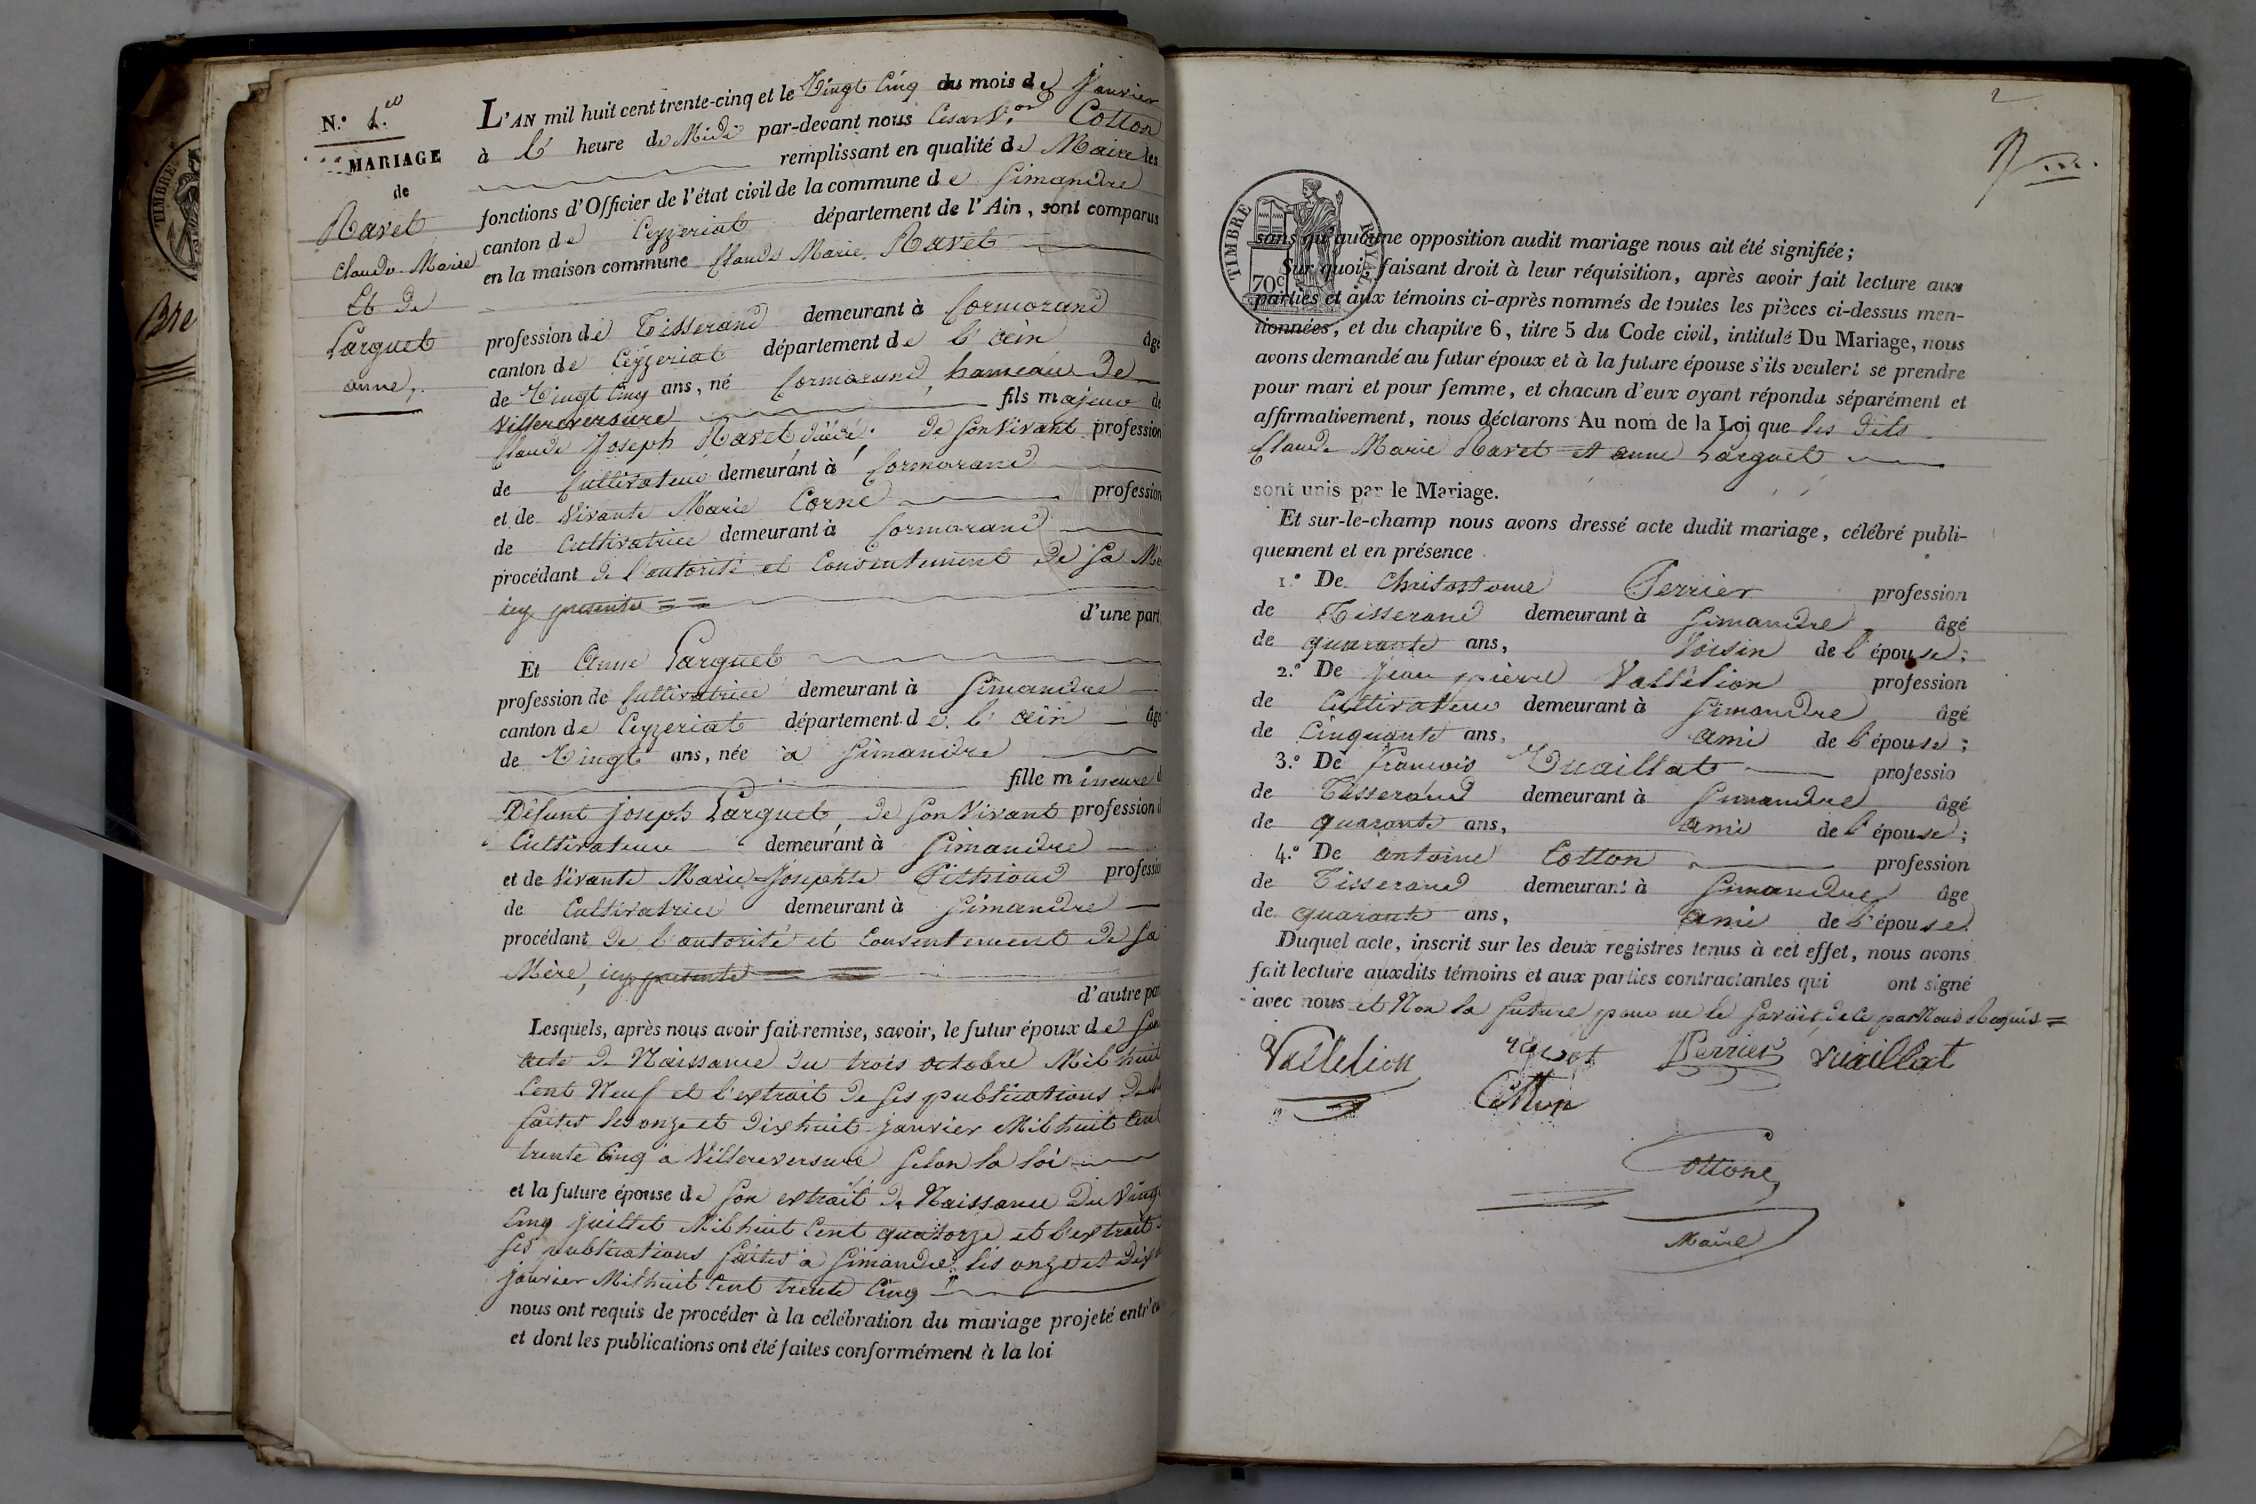 N.º 1.er
MARIAGE
de
Ravet
Claude Marie
Et de
Larguet
anne,
L'AN mil huit cent trente-cinq et le Vingt Cinq du mois de Janvier
à l' heure de Midi par-devant nous César V.or Cotton
remplissant en qualité de Maire les
fonctions d'Officier de l'état civil de la commune de Simandre
canton de Ceyzeriat département de l'Ain, sont comparus
en la maison commune Claude Marie Ravet
profession de Tisserand demeurant à Cormorand
canton de Ceyzeriat département de l'ain âgé
de Vingt Cinq ans, né Cormorand, hameau de
Villereversure fils majeur de
Claude Joseph Ravet décédé. de Son Vivant profession
de Cultivateur demeurant à Cormorand
et de Vivante Marie Corne profession
de Cultivatrice demeurant à Cormorand
procédant de l'autorité et Consentement de Sa Mè
icy presente
d'une part
Et Anne Larguet
profession de Cultivatrice demeurant à Simandre
canton de Ceyzeriat département de l'ain âgé
de Vingt ans, née à Simandre
fille mineure d
Défunt Joseph Larguet de Son Vivant profession d
Cultivateur demeurant à Simandre
et de Vivante Marie-Josephte Pithioud professio
de Cultivatrice demeurant à Simandre
procédant de l'autorité et Consentement de Sa
Mère, icy presente
d'autre par
Lesquels, après nous avoir fait remise, savoir, le futur époux de Son
acte de Naissance du trois octobre Mil huit
Cent Neuf et l'extrait de Ses publications
faites les onze et Dix huit janvier Mil huit Cent
trente Cinq a Villereversure Selon la loi
et la future épouse de Son extrait de Naissance du Vingt
Cinq Juillet Mil huit Cent quatorze et l'extrait d
Ses publications faites a Simandre les onze et Dix
janvier Mil huit Cent trente Cinq
nous ont requis de procéder à la célébration du mariage projeté entr'eu
et dont les publications ont été faites conformément à la loi
TIMBRE
2
TIMBRE ROYAL
70c
sans qu'aucune opposition audit mariage nous ait été signifiée;
Sur quoi, faisant droit à leur réquisition, après avoir fait lecture aux
parties et aux témoins ci-après nommés de toutes les pièces ci-dessus men-
tionnées, et du chapitre 6, titre 5 du Code civil, intitulé Du Mariage, nous
avons demandé au futur époux et à la future épouse s'ils veulent se prendre
pour mari et pour femme, et chacun d'eux ayant répondu séparément et
affirmativement, nous déclarons Au nom de la Loi que les dits
Claude Marie Ravet et anne Larguet
sont unis par le Mariage.
Et sur-le-champ nous avons dressé acte dudit mariage, célébré publi-
quement et en présence
1.º De Chrisostome Perrier profession
de Tisserand demeurant à Simandre âgé
de quarante ans, Voisin de l'épouse;
2.º De Jean pierre Vallélion profession
de Cultivateur demeurant à Simandre âgé
de Cinquante ans, ami de l'épouse;
3.º De francois Vuaillat professio
de Tisserand demeurant à Simandre âgé
de quarante ans, ami de l'épouse;
4.º De antoine Cotton profession
de Tisserand demeurant à Simandre âge
de quarante ans, ami de l'épouse.
Duquel acte, inscrit sur les deux registres tenus à cet effet, nous avons
fait lecture auxdits témoins et aux parties contractantes qui ont signé
avec nous et Non la future pour ne le Savoir, de ce par Nous Requis
Vallelion ravet Perrier vuaillat
Cotton
Cottone,
Maire